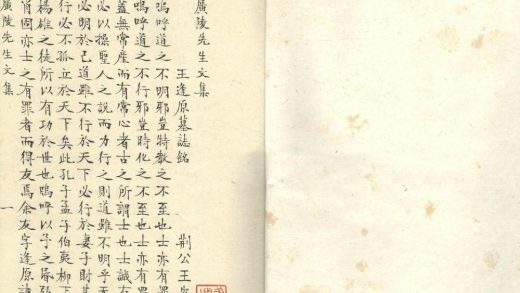 廣陵先生文集
王逢原墓誌銘 荆公王
嗚呼道之不明邪豈特教之不至也士亦有罪
嗚呼道之不行邪豈特化之不至也士亦有罪
蓋無常產而有常心者古之所謂士也士誠有
必以操聖人之說而力行之則道雖不明乎天
必明於己道雖不行於天下必行於妻子則其
行必不孤立於天下矣此孔子孟子伯夷柳下
楊雄之徒所以有功於世也嗚呼以予之昏弱
肖固亦士之有罪者而得友焉余友字逢原諱
廣陵先生文集 一